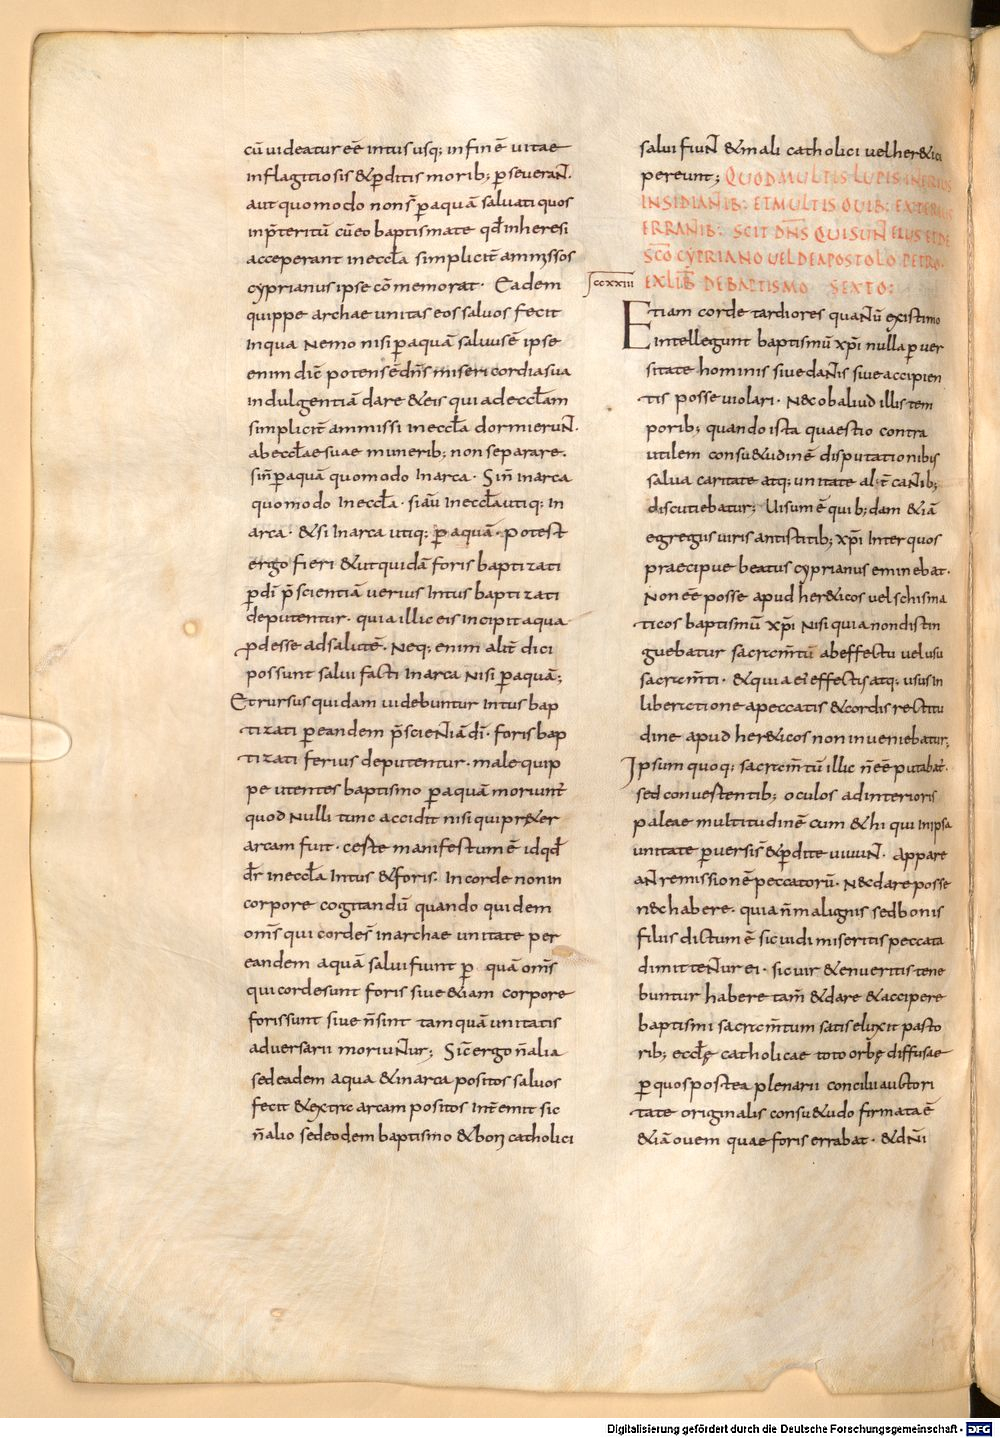 cū uideatur eē intus usq; in finē uitae
in flagitiosis & p̱ditis morib; p̱seueraN̄.
aut quomodo non s̄ p̱ aquā saluati quos
in p̄teritū cū eo baptismate qđ in heresi
acceperant in eccła simpliciṫ ammissos
cyprianus ipse cōmemorat. Eadem
quippe archae unitas eos saluos fecit
in qua nemo nisi p̱ aquā saluus ē ipse
enim dic̄ potens ē dn̄s misericordia sua
indulgentiā dare & eis qui ad eccłam
simpliciṫ ammissi in eccła dormieruN̄.
ab ecclae suae munerib; non separare.
sin̄ p̱ aquā quomodo in arca. Sin̄ in arca
quomodo in eccła. si aū in eccła utiq; in
arca. & si in arca utiq; p̱ aquā. potest
ergo fieri & ut quidā foris baptizati
p̱ dī p̄scientiā uerius intus baptizati
deputentur. quia illic eis incipit aqua
p̱desse ad salutē. Neq; enim aliṫ dici
possunt salui facti in arca nisi p̱ aquā;
Et rursus quidam uidebuntur intus bap
tizati p̱ eandem p̄scieNtiā dī. foris bap
tizati ferius deputentur. male quip
pe utentes baptismo p̱ aquā moriunṫ
quod nulli tunc accidit nisi qui pr&er
arcam fuit. certe manifestum ē id qđ
dr̄ in eccła intus & foris. in corde non in
corpore cogitandū quando quidem
om̄s qui corde s̄ in archae unitate per
eandem aquā salui fiunt p̱ quā om̄s
qui corde sunt foris siue &iam corpore
foris sunt siue n̄ sint tamquā unitatis
aduersarii moriuNtur; Sic̄ ergo n̄ alia
sed eadem aqua & in arca positos saluos
fecit & extra arcam positos inṫemit sic
n̄ alio sed eodem baptismo & boni catholici
salui fiuN̄ & mali catholici uel her&ici
pereunt; QUOD MULTIS LUPIS INTERIUS
INSIDIAN̄IB: ET MULTIS OUIB: EXTERIUS
ERRAN̄IB: SCIT DN̄S QUI SUN̄ EIUS ET DE
SC̄O CYPRIANO UEL DE APOSTOLO PETRO.
ccxxiii EX LIB̄ DE BAPTISMO SEXTO:
Etiam corde tardiores quaN̄ū existimo
intellegunt baptismū xp̄i nulla p̱uer
sitate hominis siue daN̄is siue accipien
tis posse uiolari. N&c ob aliud illis tem
porib; quando ista quaestio contra
utilem consu&udinē disputationib;
salua caritate atq; unitate alṫcaN̄ib;
discutiebatur; Uisum ē quib;dam &iā
egregiis uiris antistitib; xp̄i inter quos
praecipue beatus cyprianus eminebat.
Non eē posse apud her&icos uel schisma
ticos baptismū xp̄i nisi quia non distin
guebatur sacram̄tū ab effectu uel usu
sacram̄ti. & quia ei' effectis atq; usus in
liberatione a peccatis & cordis rectitu
dine apud her&icos non inueniebatur;
Ipsum quoq; sacram̄tū illic n̄ eē putabaṫ.
sed conuertentib; oculos ad interioris
paleae multitudinē cum & hi qui in ipsa
unitate p̱uersis & p̱dite uiuuN̄. appare
aN̄ remissionē peccatorū. N&c dare posse
n&c habere. quia n̄ malignis sed bonis
filiis dictum ē si cui dimiseritis peccata
dimitteNtur ei. si cui & enueritis tene
buntur habere tam̄ & dare & accipere
baptismi sacram̄tum satis eluxit pasto
rib; eccłę catholicae toto orbę diffusae
p̱ quos postea plenarii concilii auctori
tate originalis consu&udo firmata ē
& iā ouem quae foris errabat. & dn̄i
Digitalisierung gefördert durch die Deutsche Forschungsgemeinschaft - DFG